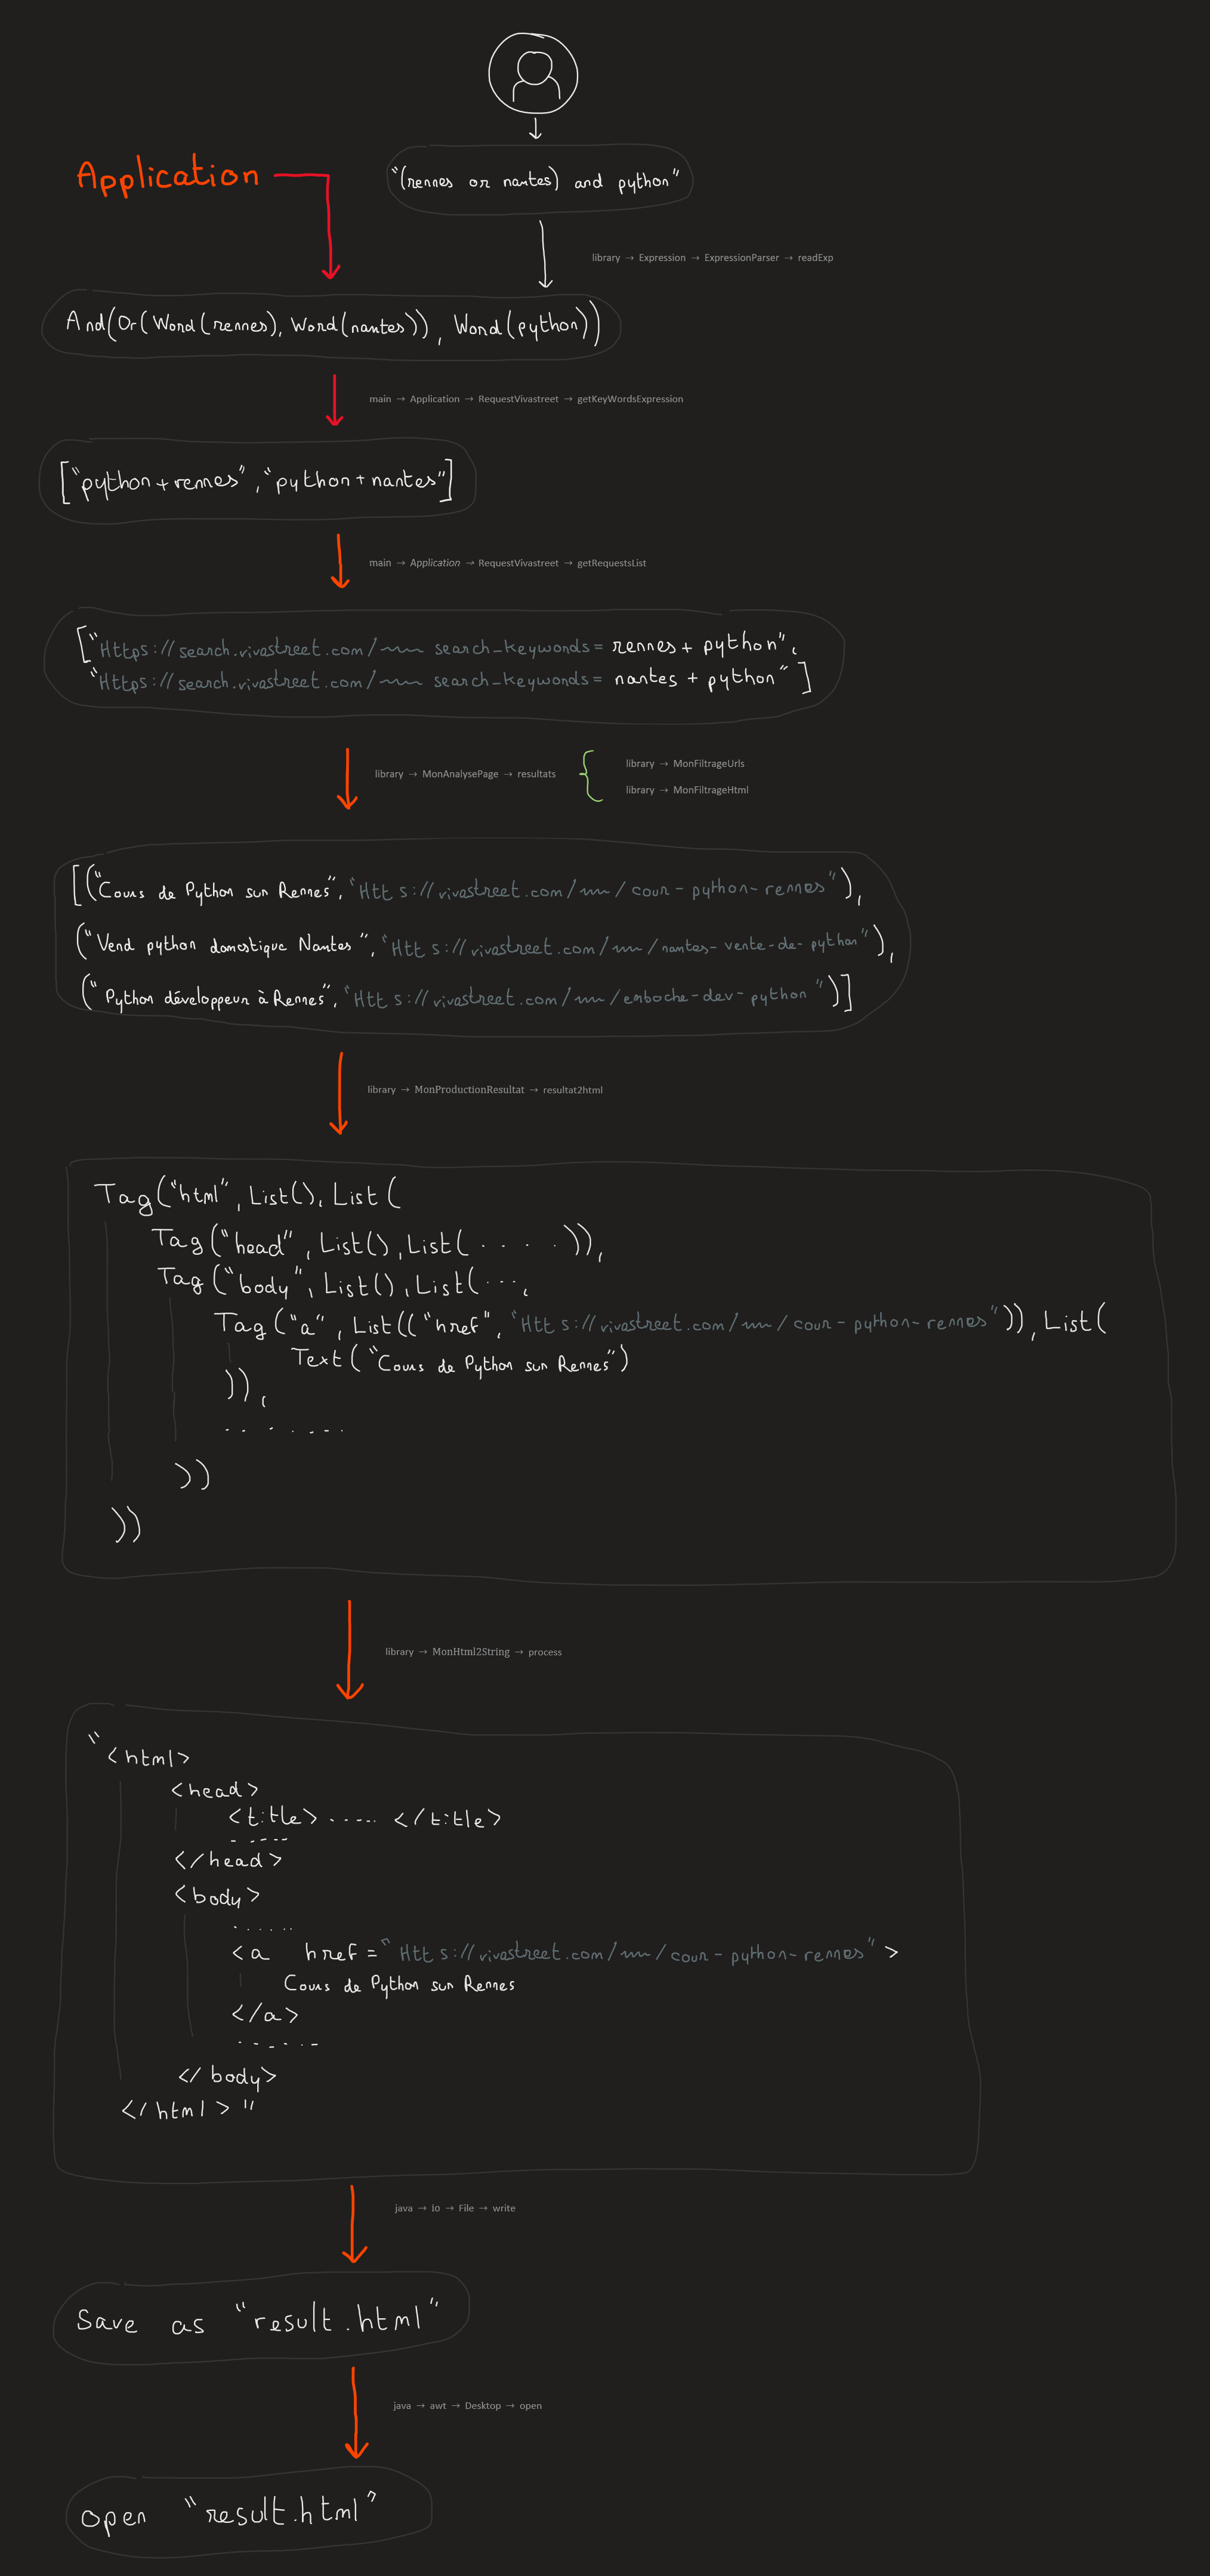 Application
"(rennes or nantes) and python"
library → Expression → ExpressionParser → readExp
And(Or(Word(rennes), Word(nantes)), Word(python))
main → Application → RequestVivastreet → getKeyWordsExpression
["python+rennes", "python+nantes"]
main → Application → RequestVivastreet → getRequestsList
["Https://search.vivastreet.com/ search_keywords= rennes + python",
"Https://search.vivastreet.com/ search_keywords= nantes + python"]
library → MonAnalysePage → resultats
library → MonFiltrageUrls
library → MonFiltrageHtml
[("Cours de Python sur Rennes", "Htt s://vivastreet.com/ / cour-python-rennes"),
("Vend python domestique Nantes", "Htt s://vivastreet.com/ /nantes-vente-de-python"),
("Python développeur à Rennes", "Htt s://vivastreet.com/ /emboche-dev-python")]
library → MonProductionResultat → resultat2html
Tag("html", List(), List(
Tag("head", List(), List( . . . . )),
Tag("body", List(), List(...,
Tag("a", List(("href", "Htt s://vivastreet.com/ / cour-python-rennes")), List(
Text("Cours de Python sur Rennes")
)),
. . . . . . . .
))
))
library → MonHtml2String → process
"<html>
<head>
<title> ..... </title>
. . . . .
</head>
<body>
. . . . . .
<a href="Htt s://vivastreet.com/ / cour-python-rennes">
Cours de Python sur Rennes
</a>
. . . . . .
</body>
</html>"
java → io → File → write
Save as "result.html"
java → awt → Desktop → open
open "result.html"